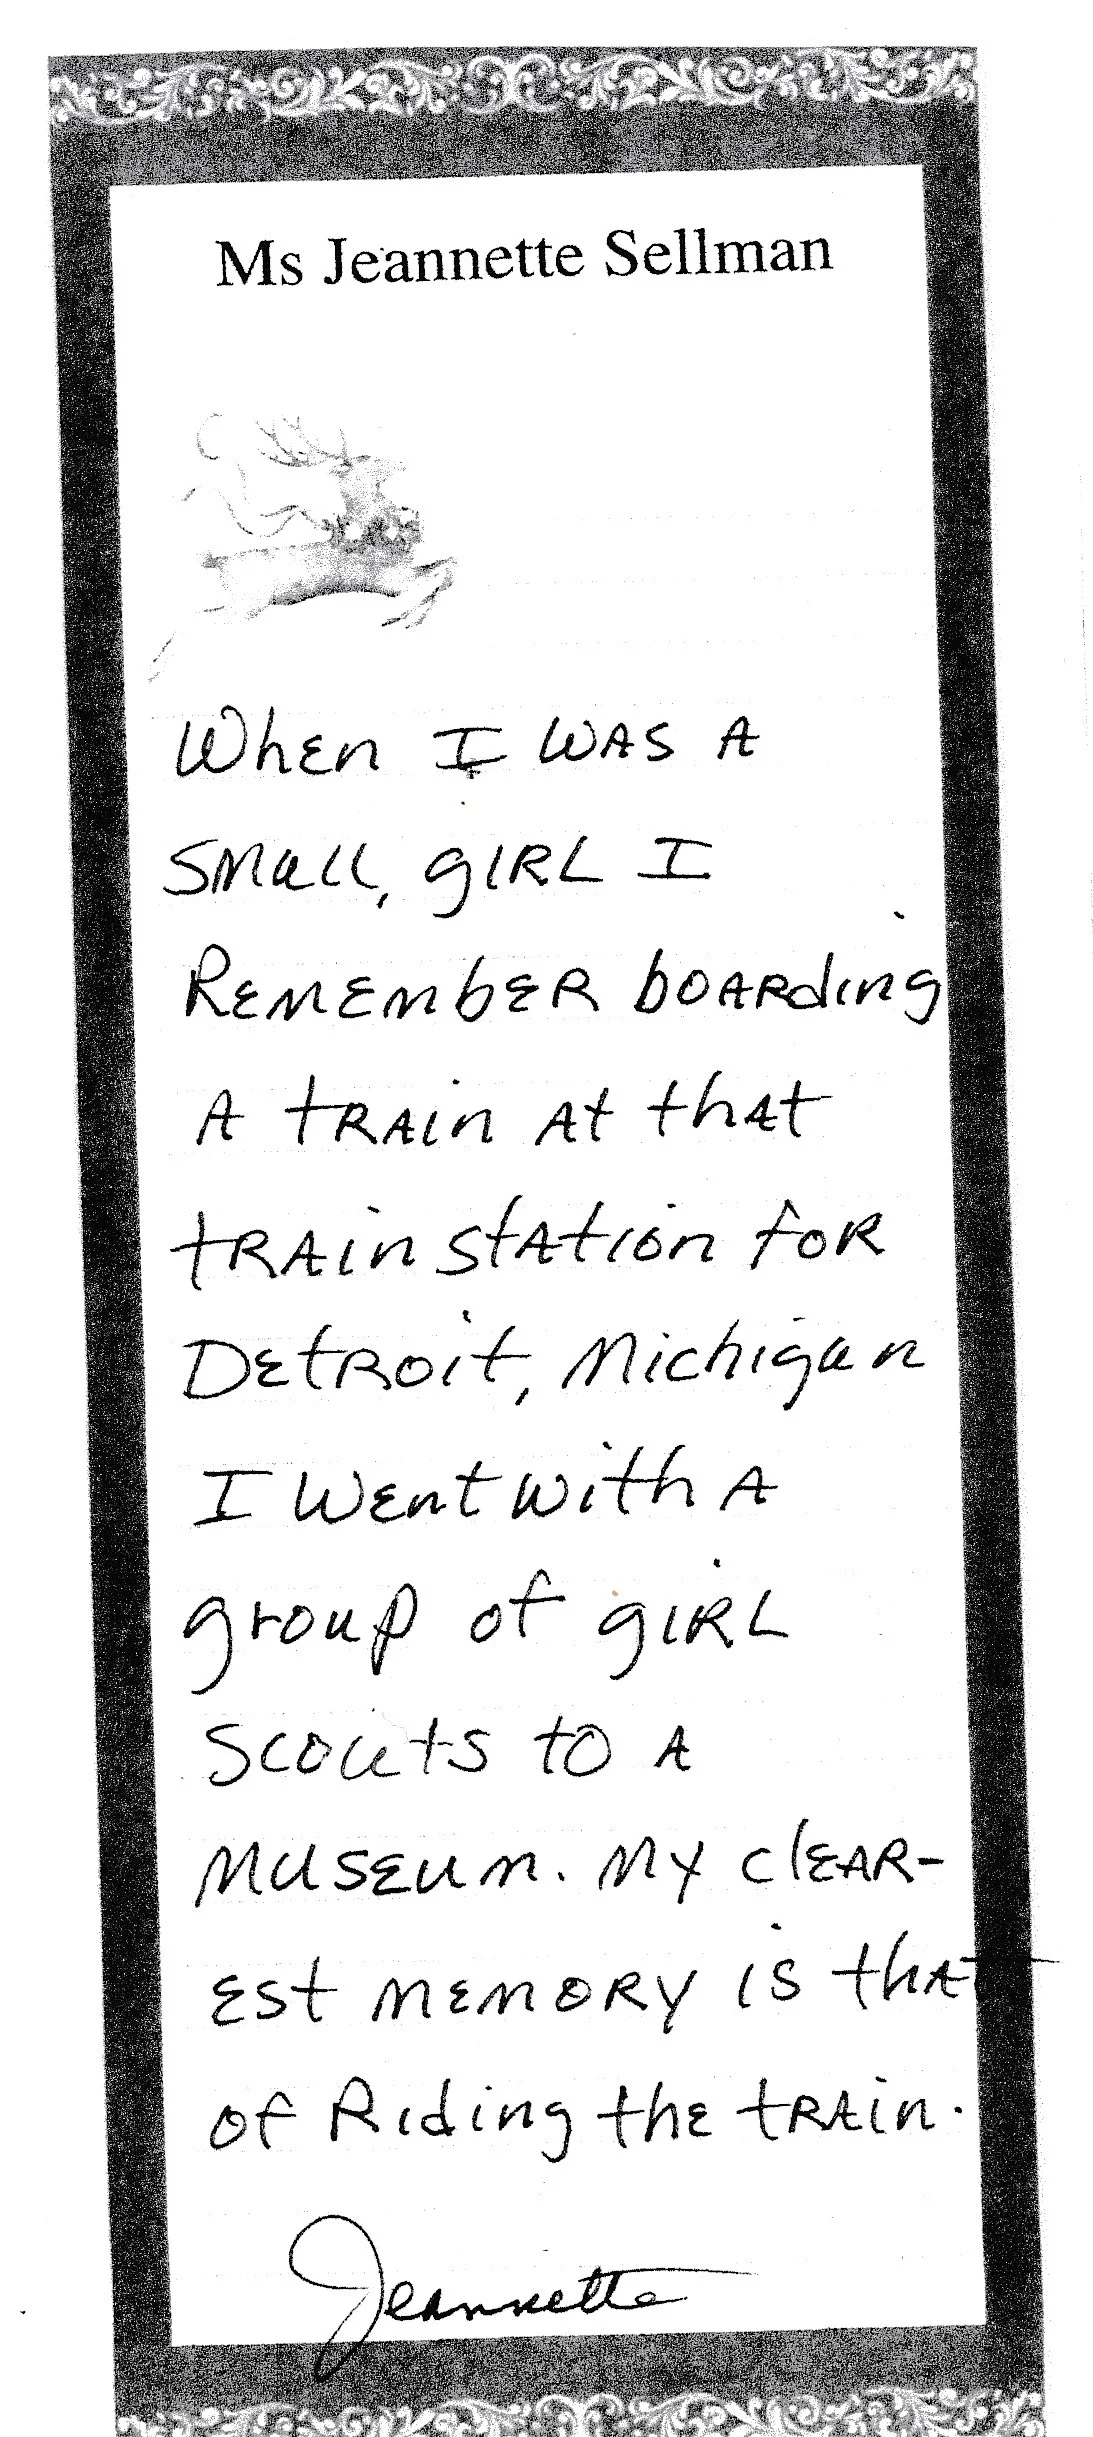 Ms Jeannette Sellman
When I was a
small, girl I
Remember boarding
a train at that
train station for
Detroit, Michigan
I went with a
group of girl
scouts to a
museum. My clear-
est memory is that
of Riding the train.
Jeannette